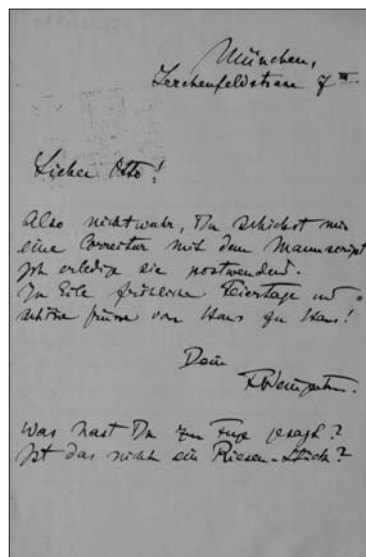 München,
Lerchenfeldstrasse 7 III
Lieber Otto!
Also nicht wahr, Du schickst mir
eine Correctur mit dem Manuscript
Ich erledige sie postwendend.
In Eile fröhliche Feiertage und
schöne Grüsse von Haus zu Haus!
Dein
FWeingartner.
Was hast Du zur Fuge gesagt?
Ist das nicht ein Riesen-Stück?